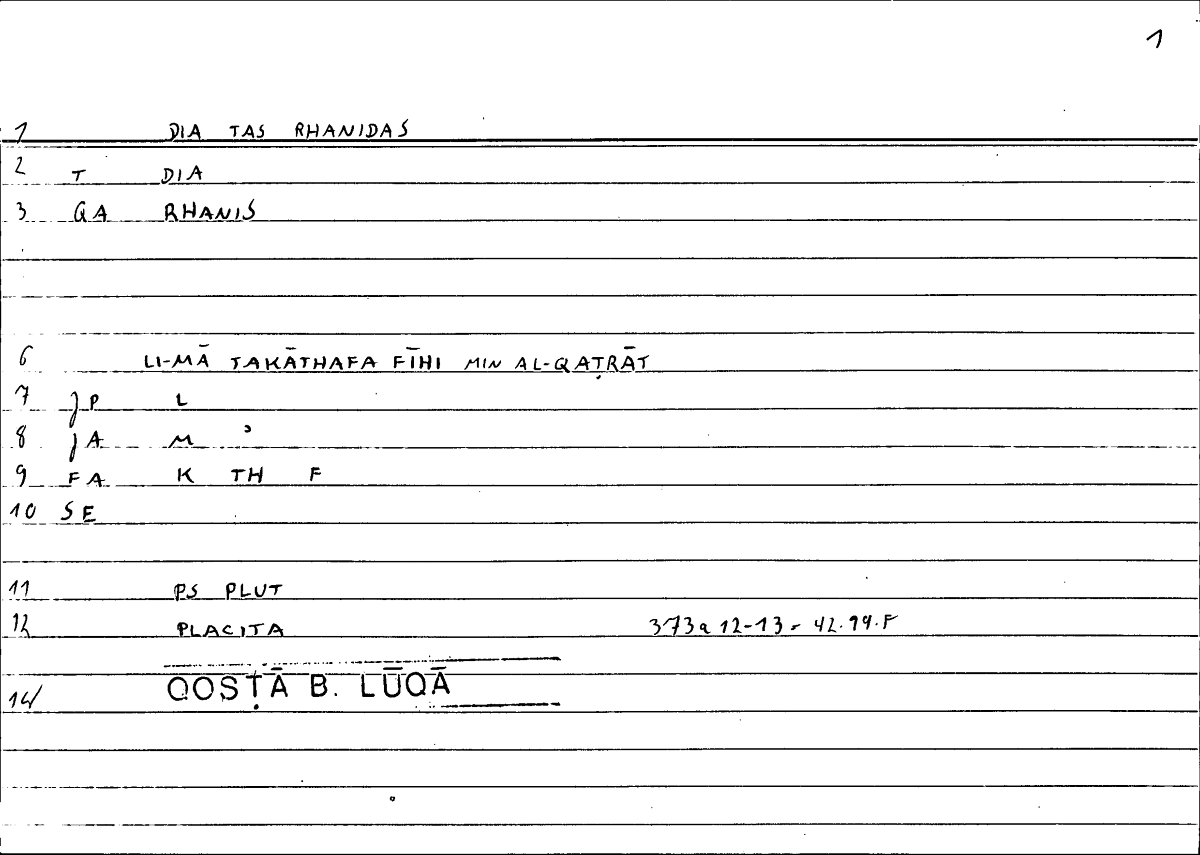 1
1 DIA TAS RHANIDAS
2 T DIA
3 QA RHANIS
6 LI-MĀ TAKĀTHAFA FĪHI MIN AL-QAṬRĀT
7 JP L
8 JA M ʾ
9 FA K TH F
10 SE
11 PS PLUT
12 PLACITA 373a 12-13 =
14 QOSṬĀ B. LŪQĀ